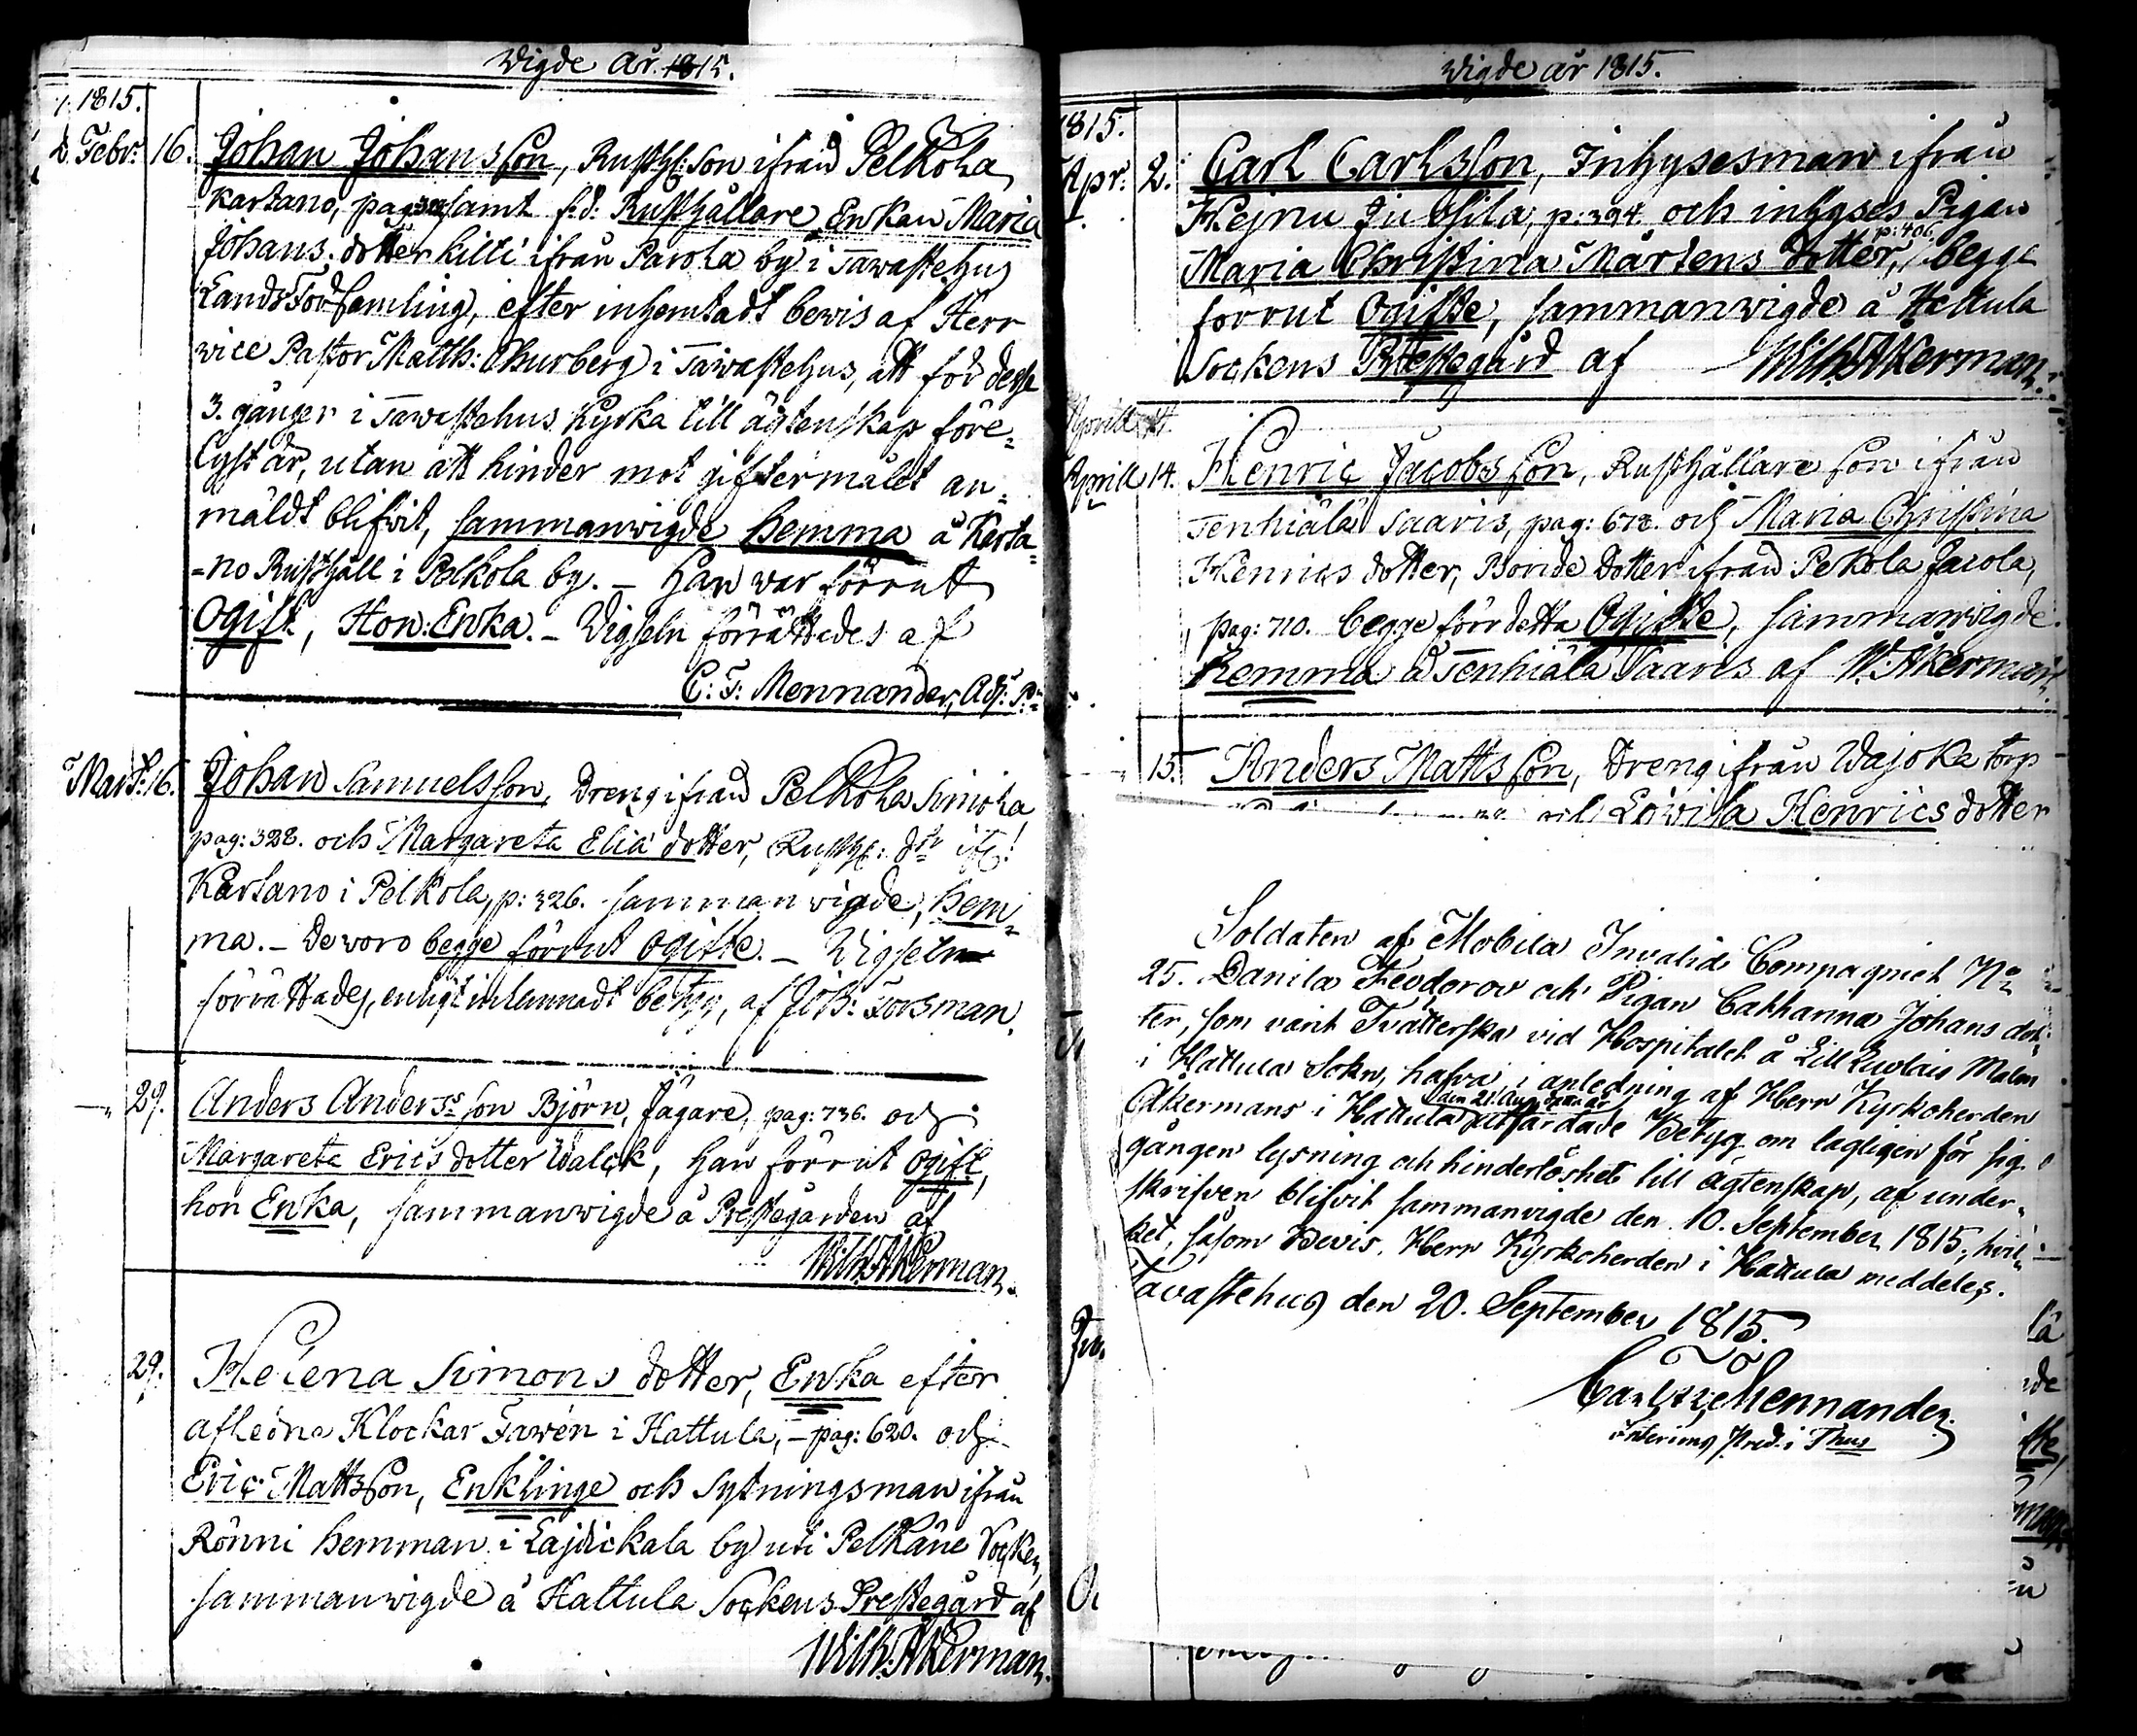 Wigde År. 1815.
1815.
Febr: 16. Johan Johansson, Rusth: Son ifrån Pelkola
Kartano, pag: samt f.d: Rusthållare Enkan Maria
Johans dotter Killi ifrån Parola by i Tawastehus
Lands Församling, efter inhemtadt bewis af Herr
vice Pastor Matth: Churberg i Tawastehus, att för desse
3. gånger i Tawastehus Kyrka till ägtenskap före=
lyst är, utan att hinder mot giftermålet an=
mäldt blifvit, sammanwigde hemma å Karta=
=no Rusthåll i Pelkola by. — Han war förrut
Ogift, Hon Enka. — Wigseln förrättades af
C: F: Mennander, Adj: P:
Mart: 16. Johan Samuelsson, Dreng ifrån Pelkola Simola,
pag: 328. och Margareta Elia dotter, Rusth: dr ifr:
Kartano i Pelkola, p: 326. sammanwigde, hem=
ma. — De woro begge förrut ogifte. — Wigseln
förrättades, enligt inlemnadt betyg, af Joh: Forsman.
29. Anders Anders son Björn, Jägare, pag: 736. och
Margareta Erics dotter Walck, han förrut ogift,
hon Enka, sammanwigde å Prestegården af
Wilh. Åkerman.
29. Helena Simons dotter, Enka efter
afledne Klockar Fawén i Hattula, — pag: 620. och
Eric Mattsson, Enklinge och Sytningsman ifrån
Rönni hemman i Lajdickala by uti Pelkäne Socken,
sammanwigde å Hattula Sockens Prestegård af
Wilh. Åkerman.
Wigde år 1815.
1815.
Apr: 2. Carl Carlsson, Inhysesman ifrån
Hejnu Jutila, p: 394. och inhyses Pigan
p: 406.
Maria Christina Mårtens dotter, begge
förrut Ogifte, sammanwigde å Hattula
Sockens Prestegård af Wilh. Åkerman.
Aprill 14.
Aprill 14. Henric Jacobs son, Rusthållare son ifrån
Tenhiälä Saaris, pag: 672. och Maria Christina
Henrics dotter, Bonde Dotter ifrån Pekola Jacola,
pag: 710. begge för detta Ogifte, sammanwigde
hemma å Tenhiälä Saaris af W. Åkerman.
15. Anders Matts son, Dreng ifrån Wajoka torp
Lowisa Henrics dotter
Soldaten af Mobila Invalid Compagniet No
25. Danila Feodorov och Pigan Catharina Johans dot=
ter, som varit Tvätterska vid Hospitalet å Lill Luolais Malm
i Hattula Sokn, hafva, i anledning af Herr Kyrkoherden
den 21. Aug
Åkermans i Hattula utfärdade Betyg om lagligen för sig
gången lysning och hinderlöshet till ägtenskap, af under=
skrifven blifvit sammanvigde den 10. September 1815; hvil=
ket, såsom Bevis, Herr Kyrkoherden i Hattula meddeles.
Tavastehus den 20. September 1815.
Carl Fr. Mennander.
Interims Pred. i Thus